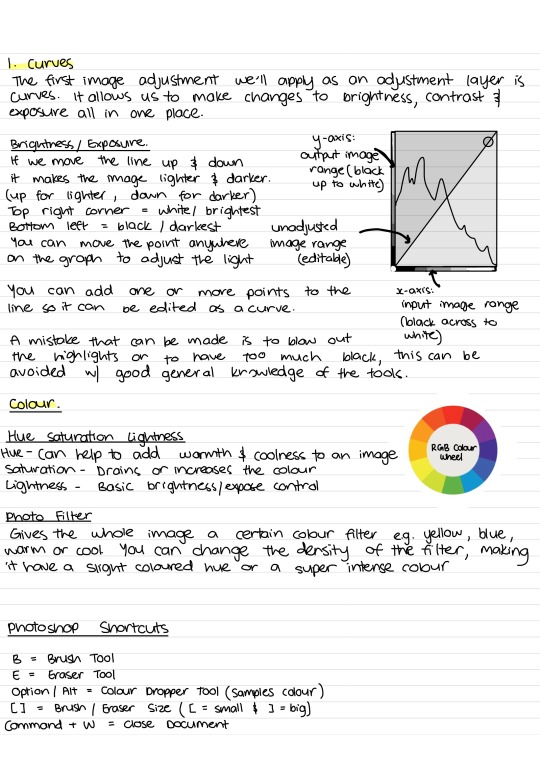 1. Curves
The first image adjustment we'll apply as an adjustment layer is
Curves. It allows us to make changes to brightness, contrast &
exposure all in one place.
Brightness / Exposure.
If we move the line up & down
it makes the image lighter & darker.
(up for lighter, down for darker)
Top right corner = white/brightest
Bottom left = black / darkest
You can move the point anywhere
on the graph to adjust the light
y-axis:
output image
range (black
up to white)
unadjusted
image range
(editable)
x-axis:
input image range
(black across to
white)
You can add one or more points to the
line so it can be edited as a curve.
A mistake that can be made is to blow out
the highlights or to have too much black, this can be
avoided w/ good general knowledge of the tools.
Colour.
Hue Saturation Lightness
Hue - Can help to add warmth & coolness to an image
Saturation - Drains or increases the colour
Lightness - Basic brightness/expose control
RGB Colour
Wheel
Photo Filter
Gives the whole image a certain colour filter eg. yellow, blue,
warm or cool. You can change the density of the filter, making
it have a slight coloured hue or a super intense colour
Photoshop Shortcuts
B = Brush Tool
E = Eraser Tool
Option / Alt = Colour Dropper Tool (samples colour)
[ ] = Brush / Eraser Size ( [ = small & ] = big)
Command + W = Close Document